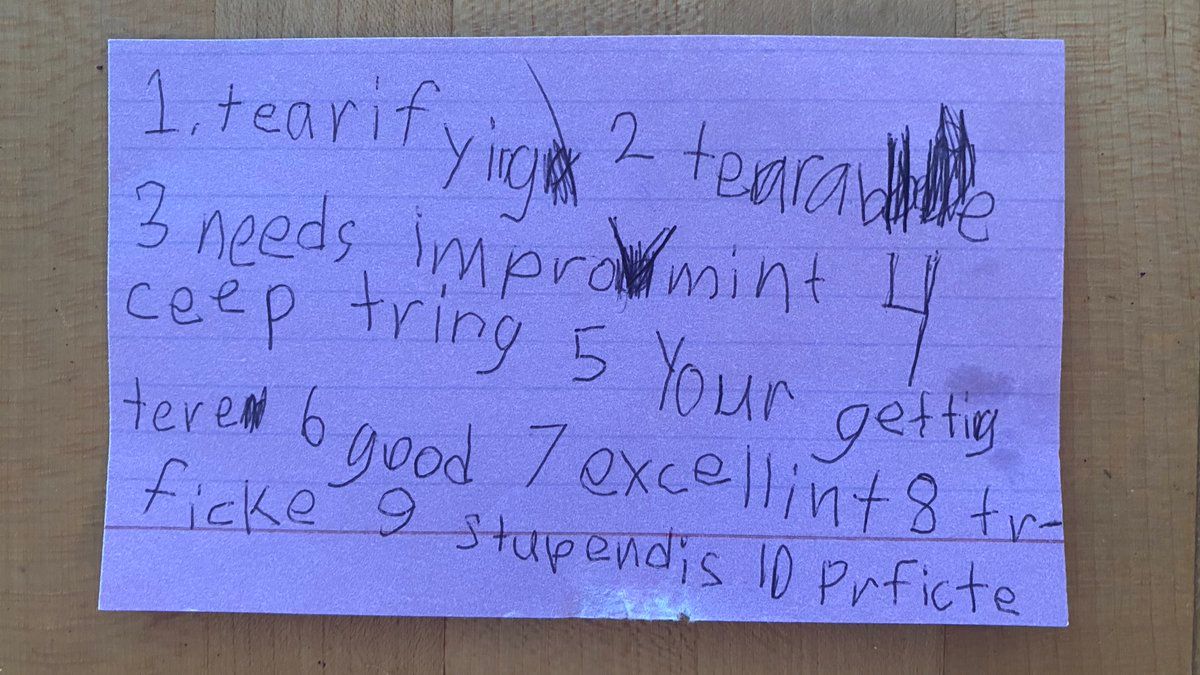 1. tearif yirg 2 tearable
3 needs improvmint 4
ceep tring 5 Your gettig
tere 6 good 7 excellint 8 tr-
ficke 9 stupendis 10 Prficte